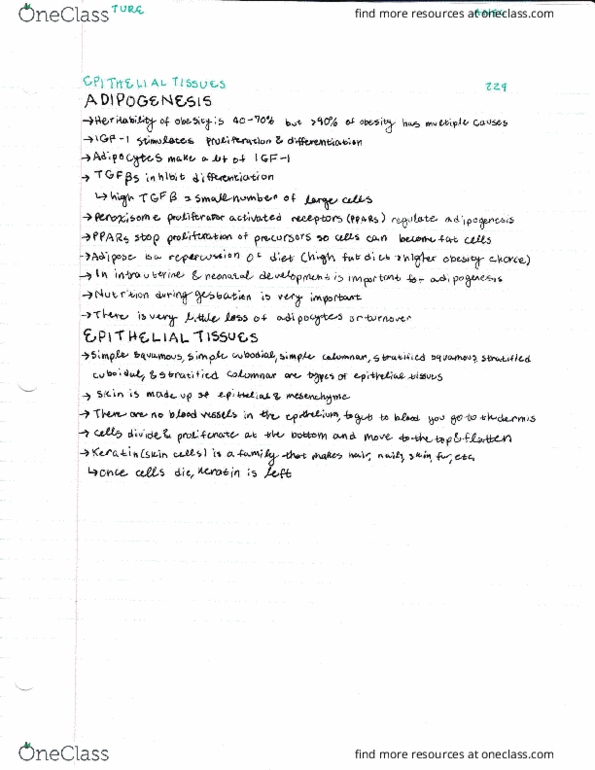 OneClass TURE
find more resources at oneclass.com
EPITHELIAL TISSUES 229
ADIPOGENESIS
→ Heritability of obesity is 40-70% but >90% of obesity has multiple causes
→ IGF-1 stimulates proliferation & differentiation
→ Adipocytes make a lot of IGF-1
→ TGFβs inhibit differentiation
↳ high TGFβ = small number of large cells
→ Peroxisome proliferator activated receptors (PPARs) regulate adipogenesis
→ PPARs stop proliferation of precursors so cells can become fat cells
→ Adipose is a repercussion of diet (high fat diet → higher obesity chance)
→ In intrauterine & neonatal development is important for adipogenesis
→ Nutrition during gestation is very important
→ There is very little loss of adipocytes or turnover
EPITHELIAL TISSUES
→ Simple squamous, simple cubodial, simple columnar, stratified squamous, stratified
cuboidal, & stratified columnar are types of epithelial tissues
→ Skin is made up of epithelial & mesenchyme
→ There are no blood vessels in the epithelium, to get to blood you go to the dermis
→ Cells divide & proliferate at the bottom and move to the top & flatten
→ Keratin (skin cells) is a family that makes hair, nails, skin, fur, etc.
↳ once cells die, keratin is left
OneClass
find more resources at oneclass.com